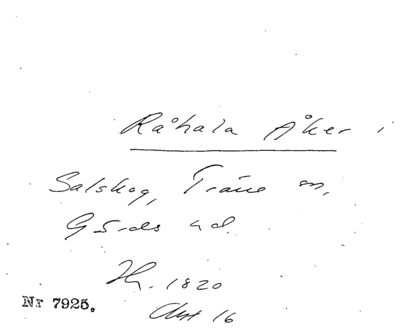 Råhala Åker i
Salskog, Träne sn,
Gärds hd.
Hr. 1820
Akt 16
Nr 7925.